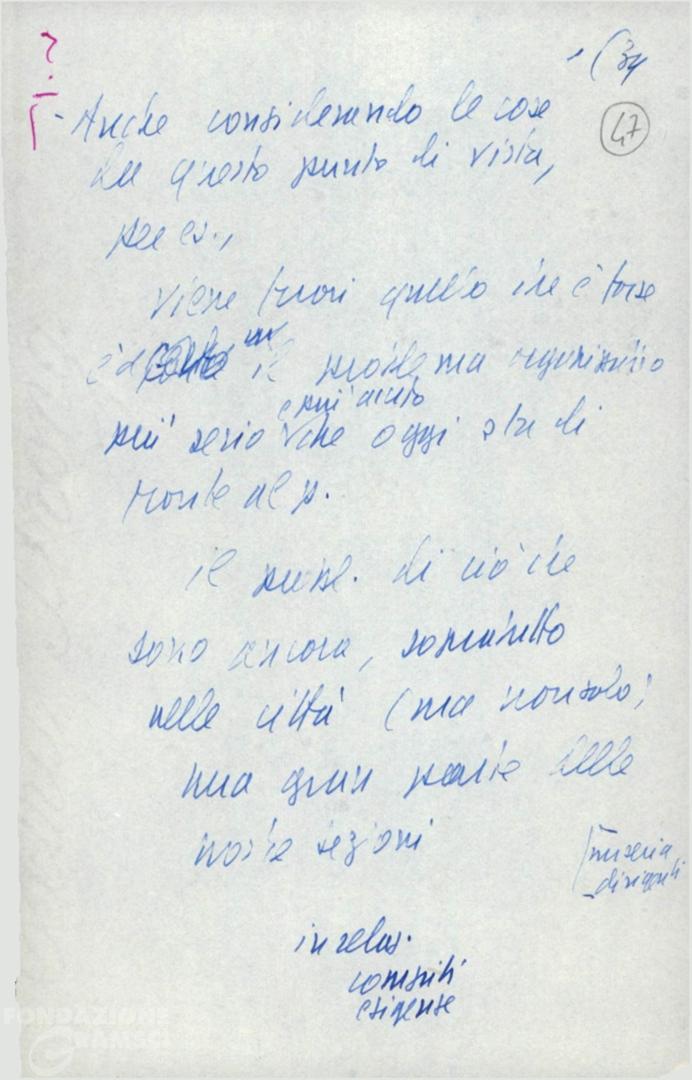 (34
47
- Anche considerando le cose
da questo punto di vista,
per es.,
viene fuori quello che è forse
è il problema organizzativo
e più acuto
più serio che oggi sta di
fronte al p.
il probl. di ciò che
sono ancora, soprattutto
nelle città (ma non solo)
una gran parte delle
nostre sezioni
miseria
dirigenti
in relaz.
compiti
esigenze
FONDAZIONE
GRAMSCI